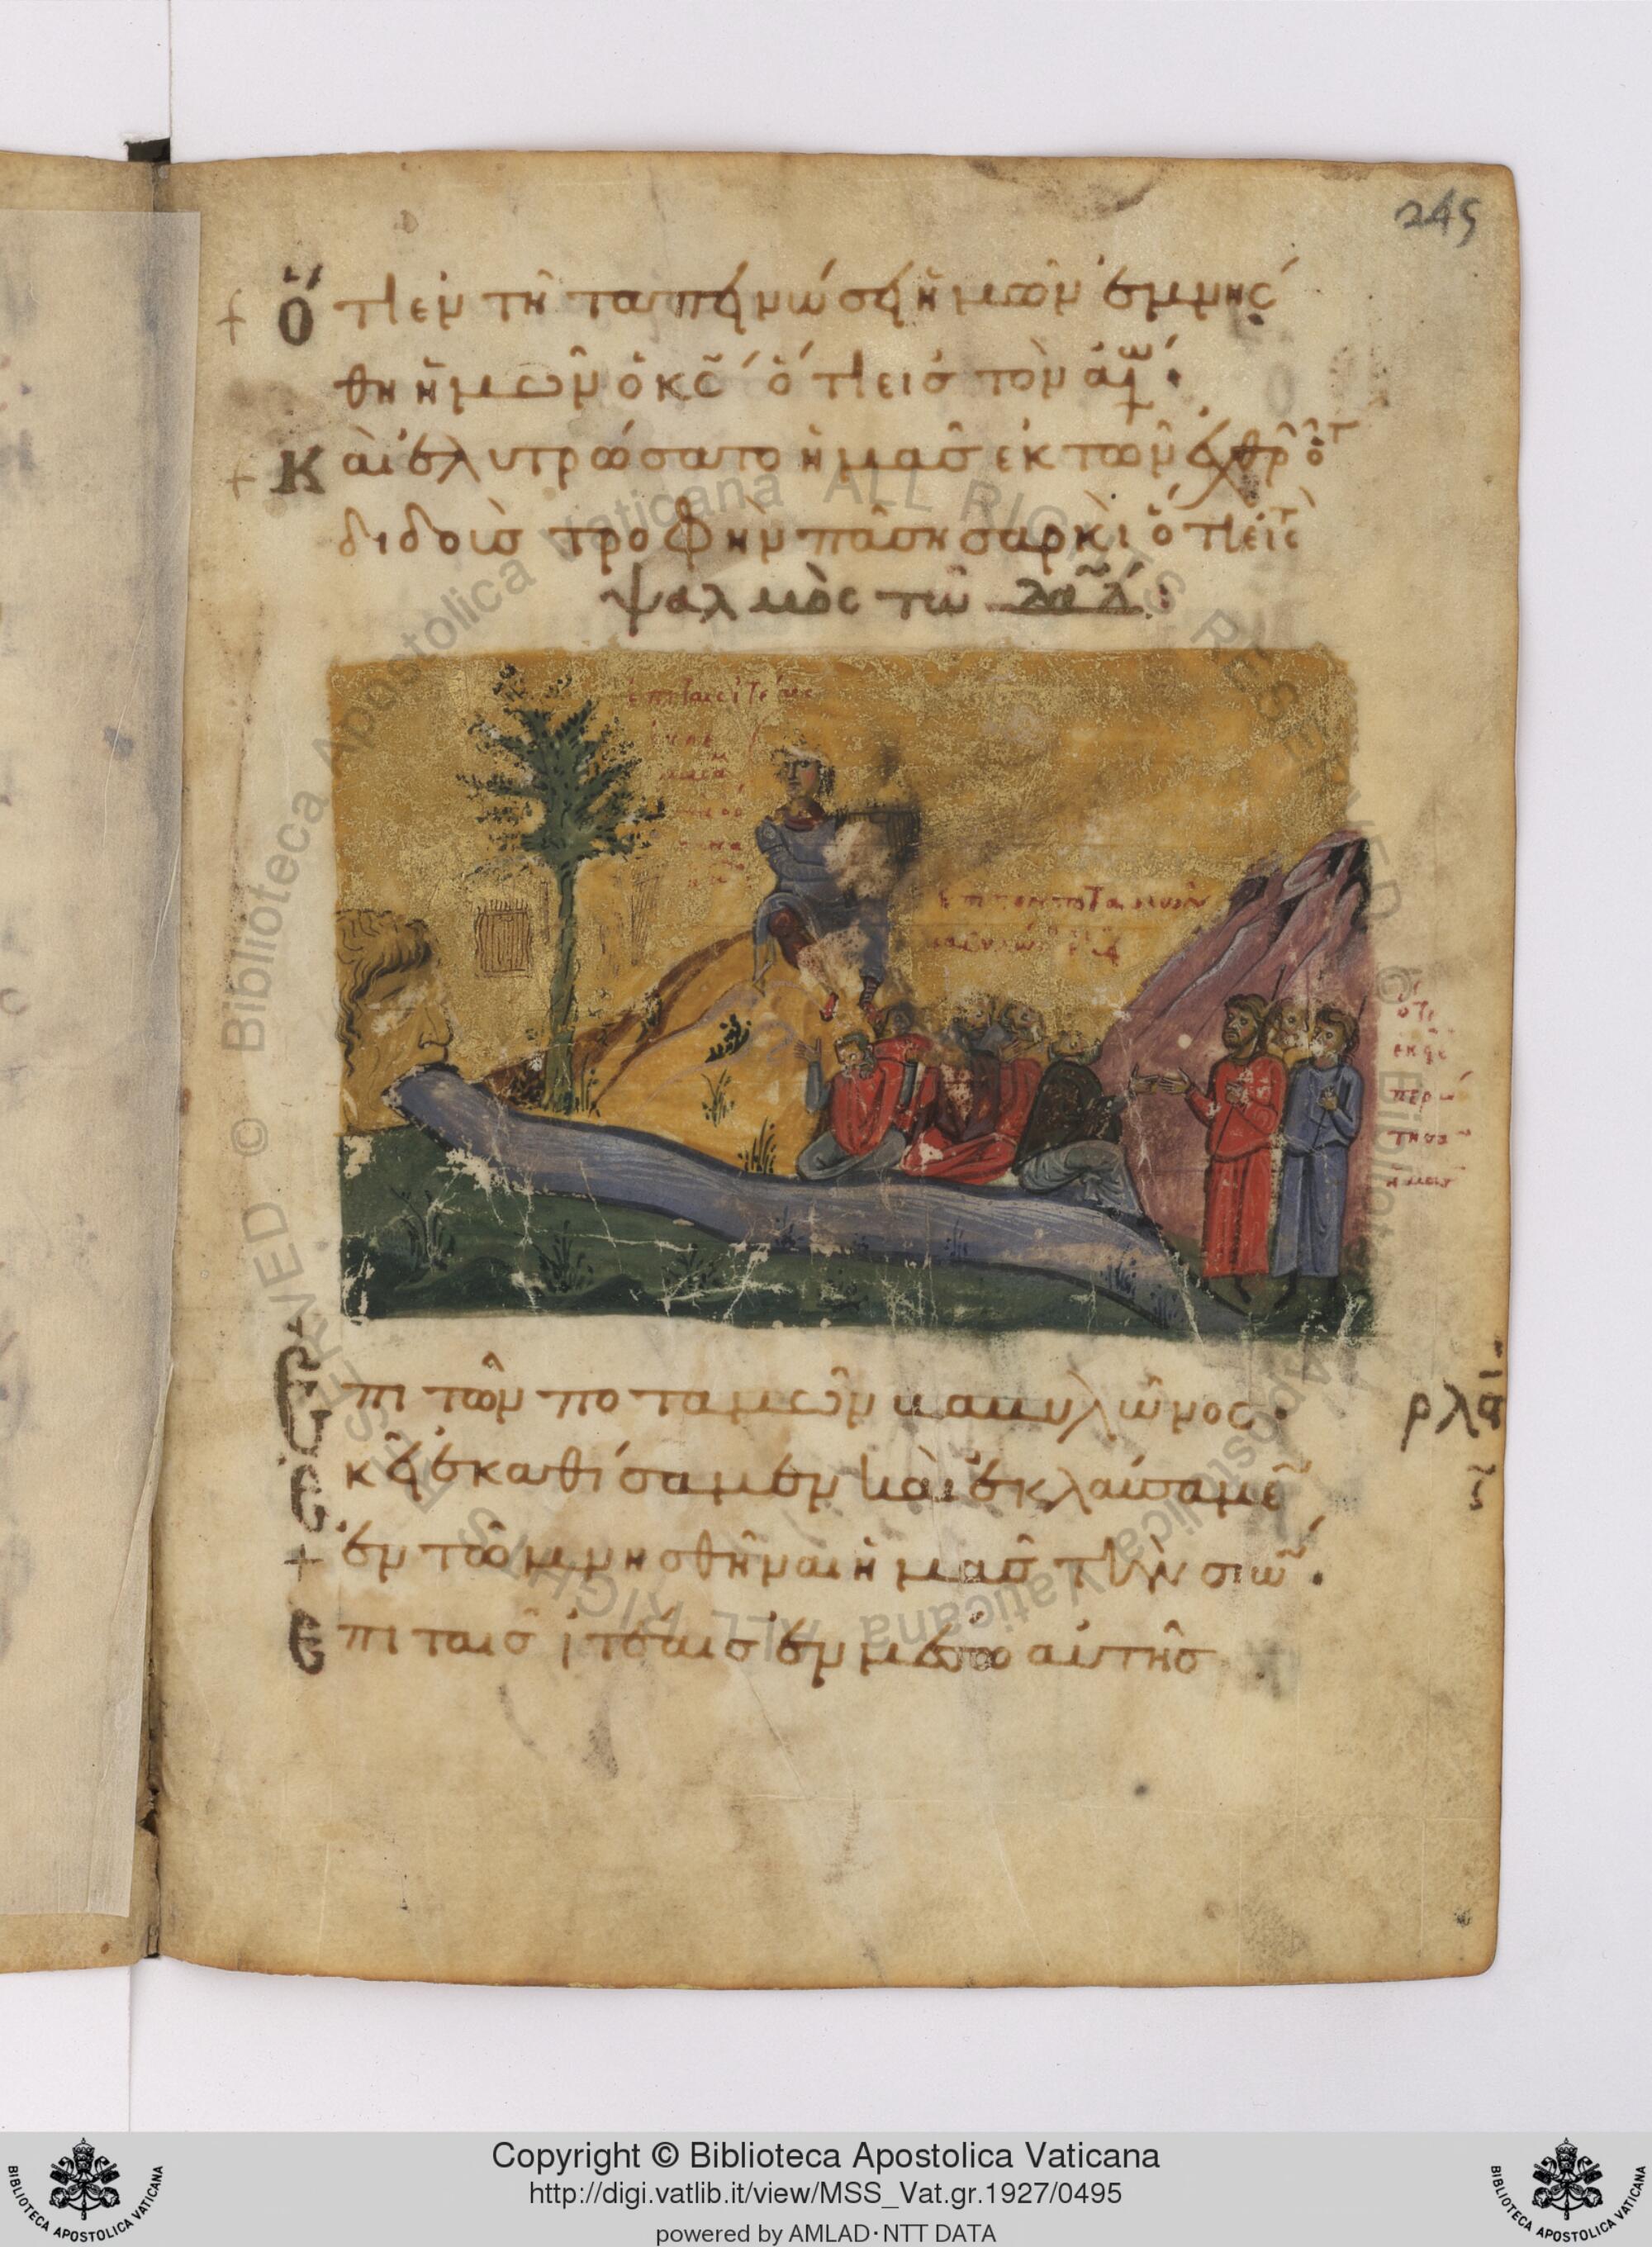 245
Ὅτι ἐν τῆ ταπεινώσει ἡμῶν ἐμνήσ
θη ἡμῶν ὁ κς̅ ὅτι εἰς τὸν αἰῶ
Καὶ ἐλυτρώσατο ἡμᾶς ἐκ τῶν ἐχθρῶ ὅτ
διδοὺς τροφὴν πάση σαρκὶ ὅτι εἰς τ
ψαλμὸς τῶ δα̅δ
ἐπὶ ταῖς ἰτέαις
ἐπὶ τῶν ποταμῶν
Ἐπὶ τῶν ποταμῶν βαβυλῶνος
ρλϛ
ἐκεῖ ἐκαθίσαμεν καὶ ἐκλαύσαμε
ἐν τῶ μνησθῆναι ἡμᾶς τὴν σιώ
Ἐπὶ ταῖς ἰτέαις ἐν μέσω αὐτῆς
ὅτι
ἐκεῖ
ἐπερώ
τησα
ἡμᾶς
Copyright © Biblioteca Apostolica Vaticana
http://digi.vatlib.it/view/MSS_Vat.gr.1927/0495
powered by AMLAD·NTT DATA
BIBLIOTECA APOSTOLICA VATICANA
BIBLIOTECA APOSTOLICA VATICANA
© Biblioteca Apostolica Vaticana ALL RIGHTS RESERVED © Biblioteca Apostolica Vaticana ALL RIGHTS RESERVED